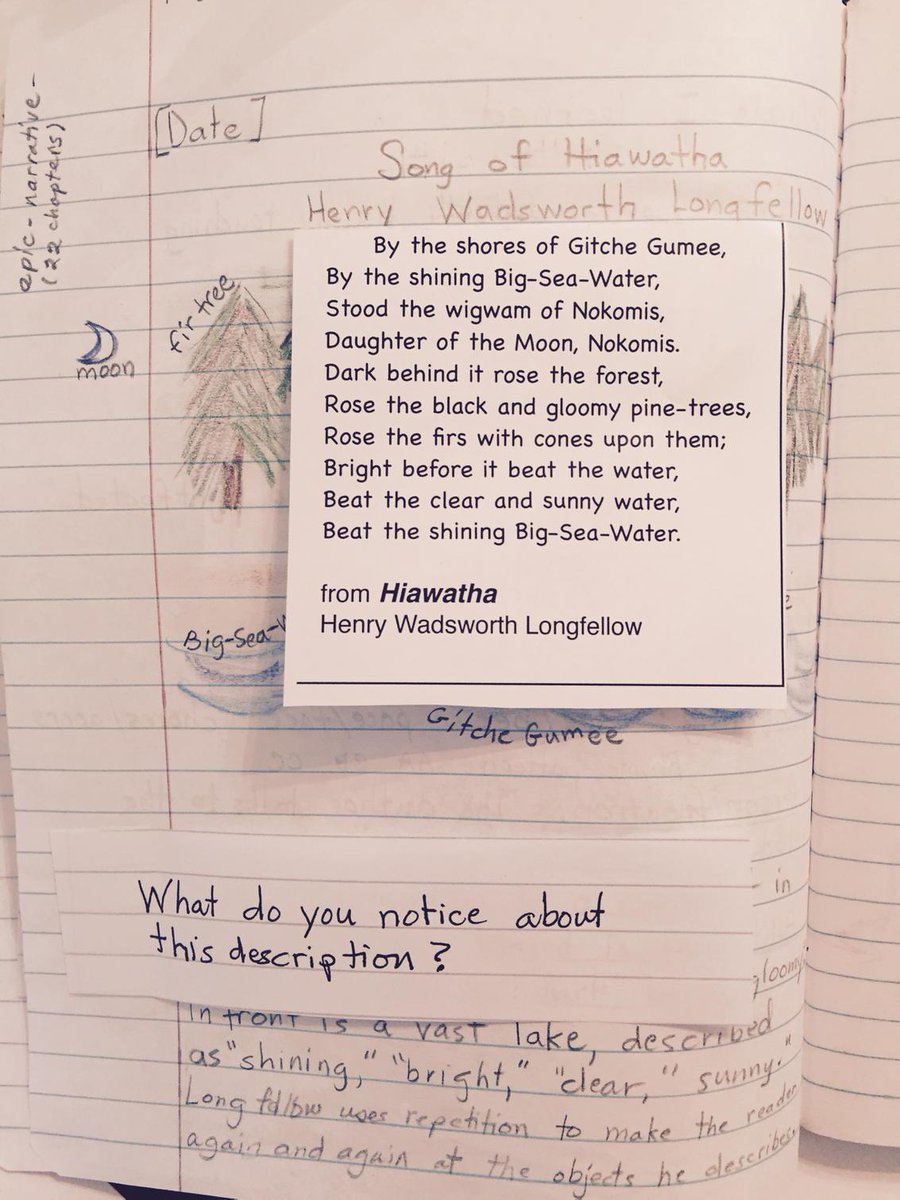 epic-narrative-
(22 chapters)
[Date]
Song of Hiawatha
Henry Wadsworth Longfellow
By the shores of Gitche Gumee,
By the shining Big-Sea-Water,
Stood the wigwam of Nokomis,
Daughter of the Moon, Nokomis.
Dark behind it rose the forest,
Rose the black and gloomy pine-trees,
Rose the firs with cones upon them;
Bright before it beat the water,
Beat the clear and sunny water,
Beat the shining Big-Sea-Water.
from Hiawatha
Henry Wadsworth Longfellow
fir tree
moon
Big-Sea-
Gitche Gumee
What do you notice about
this description?
in
gloomy,
In front is a vast lake, described
as "shining," "bright," "clear," sunny."
Longfellow uses repetition to make the reader
again and again at the objects he describes.